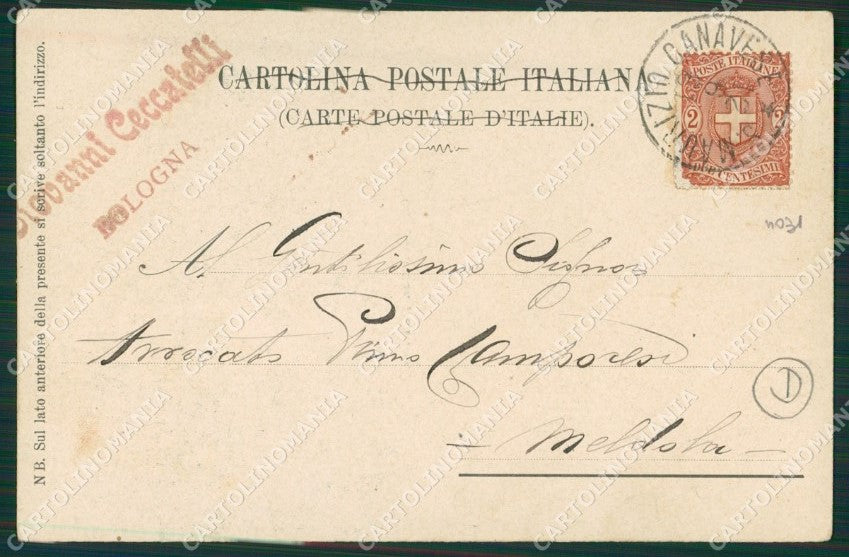 Giovanni Ceccatelli
BOLOGNA
CARTOLINA POSTALE ITALIANA
(CARTE POSTALE D'ITALIE).
POSTE ITALIANE
2 2
CENTESIMI
MAURIZIO CANAVESE
Al Gentilissimo Signor
Avvocato Primo Camporesi
- Meldola -
1
NB. Sul lato anteriore della presente si scrive soltanto l'indirizzo.
CARTOLINOMANIA